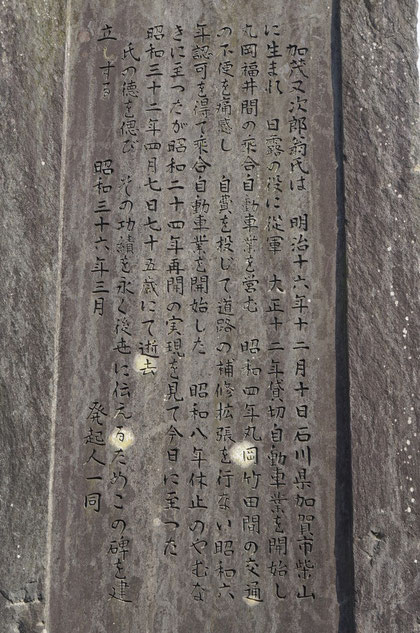 加茂又次郎翁氏は 明治十六年十二月十日石川県加賀市柴山
に生まれ 日露の役に従軍 大正十二年貸切自動車業を開始し
丸岡福井間の乗合自動車業を営む 昭和四年丸岡竹田間の交通
の不便を痛感し 自費を投じて道路の補修拡張を行ない昭和六
年認可を得て乗合自動車業を開始した 昭和八年休止のやむな
きに至つたが昭和二十四年再開の実現を見て今日に至つた
昭和三十二年四月七日七十五歳にて逝去
氏の徳を偲び その功績を永く後世に伝えるためこの碑を建
立しする
昭和三十六年三月
発起人一同